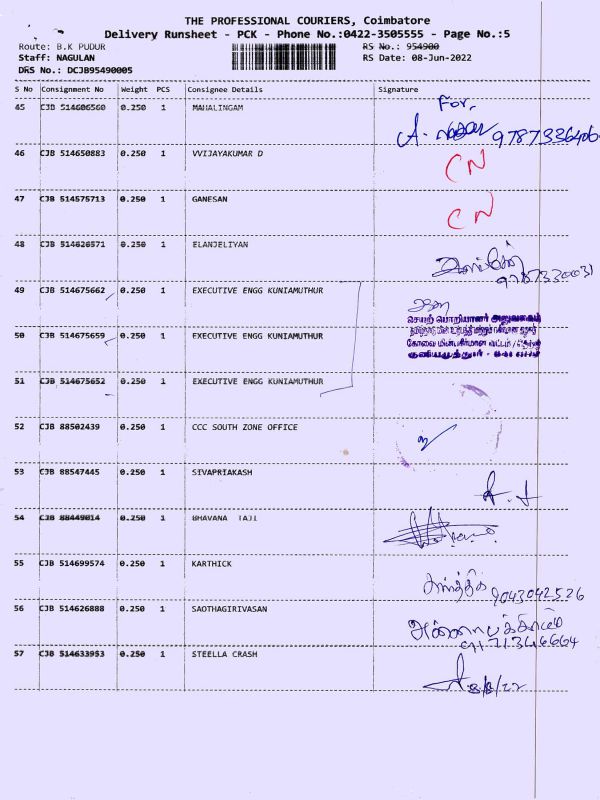 THE PROFESSIONAL COURIERS, Coimbatore
Delivery Runsheet - PCK - Phone No.:0422-3505555 - Page No.:5
Route: B.K PUDUR RS No.: 954900
Staff: NAGULAN RS Date: 08-Jun-2022
DRS No.: DCJB95490005
S No Consignment No Weight PCS Consignee Details Signature
45 CJB 514606560 0.250 1 MAHALINGAM For,
9787336406
46 CJB 514650883 0.250 1 VVIJAYAKUMAR D CN
47 CJB 514575713 0.250 1 GANESAN CN
48 CJB 514626571 0.250 1 ELANJELIYAN
9787330031
49 CJB 514675662 0.250 1 EXECUTIVE ENGG KUNIAMUTHUR
செயற் பொறியாளர் அலுவலகம்
50 CJB 514675659 0.250 1 EXECUTIVE ENGG KUNIAMUTHUR
51 CJB 514675652 0.250 1 EXECUTIVE ENGG KUNIAMUTHUR
52 CJB 88502439 0.250 1 CCC SOUTH ZONE OFFICE
53 CJB 88547445 0.250 1 SIVAPRIAKASH
54 CJB 88449014 0.250 1 BHAVANA TAJI
55 CJB 514699574 0.250 1 KARTHICK கார்த்திக் 9043042526
56 CJB 514626888 0.250 1 SAOTHAGIRIVASAN
9171346664
57 CJB 514633953 0.250 1 STEELLA CRASH
8/8/22